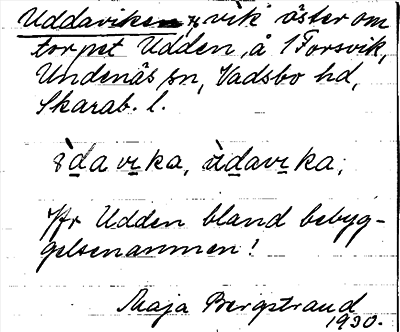 Uddaviken, vik öster om
torpet Udden, å 1 Forsvik,
Undenäs sn, Vadsbo hd,
Skarab. l.
ùdavika,
Jfr Udden bland bebyg-
gelsenamnen!
Maja Bergstrand
1930.